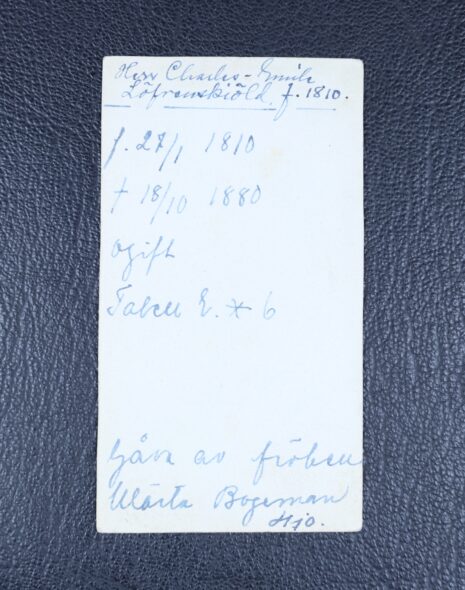 Herr Charles-Emile
Löfvenskiöld. f. 1810.
f. 27/1 1810
† 18/10 1880
Ogift
Tabell 2. * 6
Gåva av fröken
Märta Bogeman
Hjo.